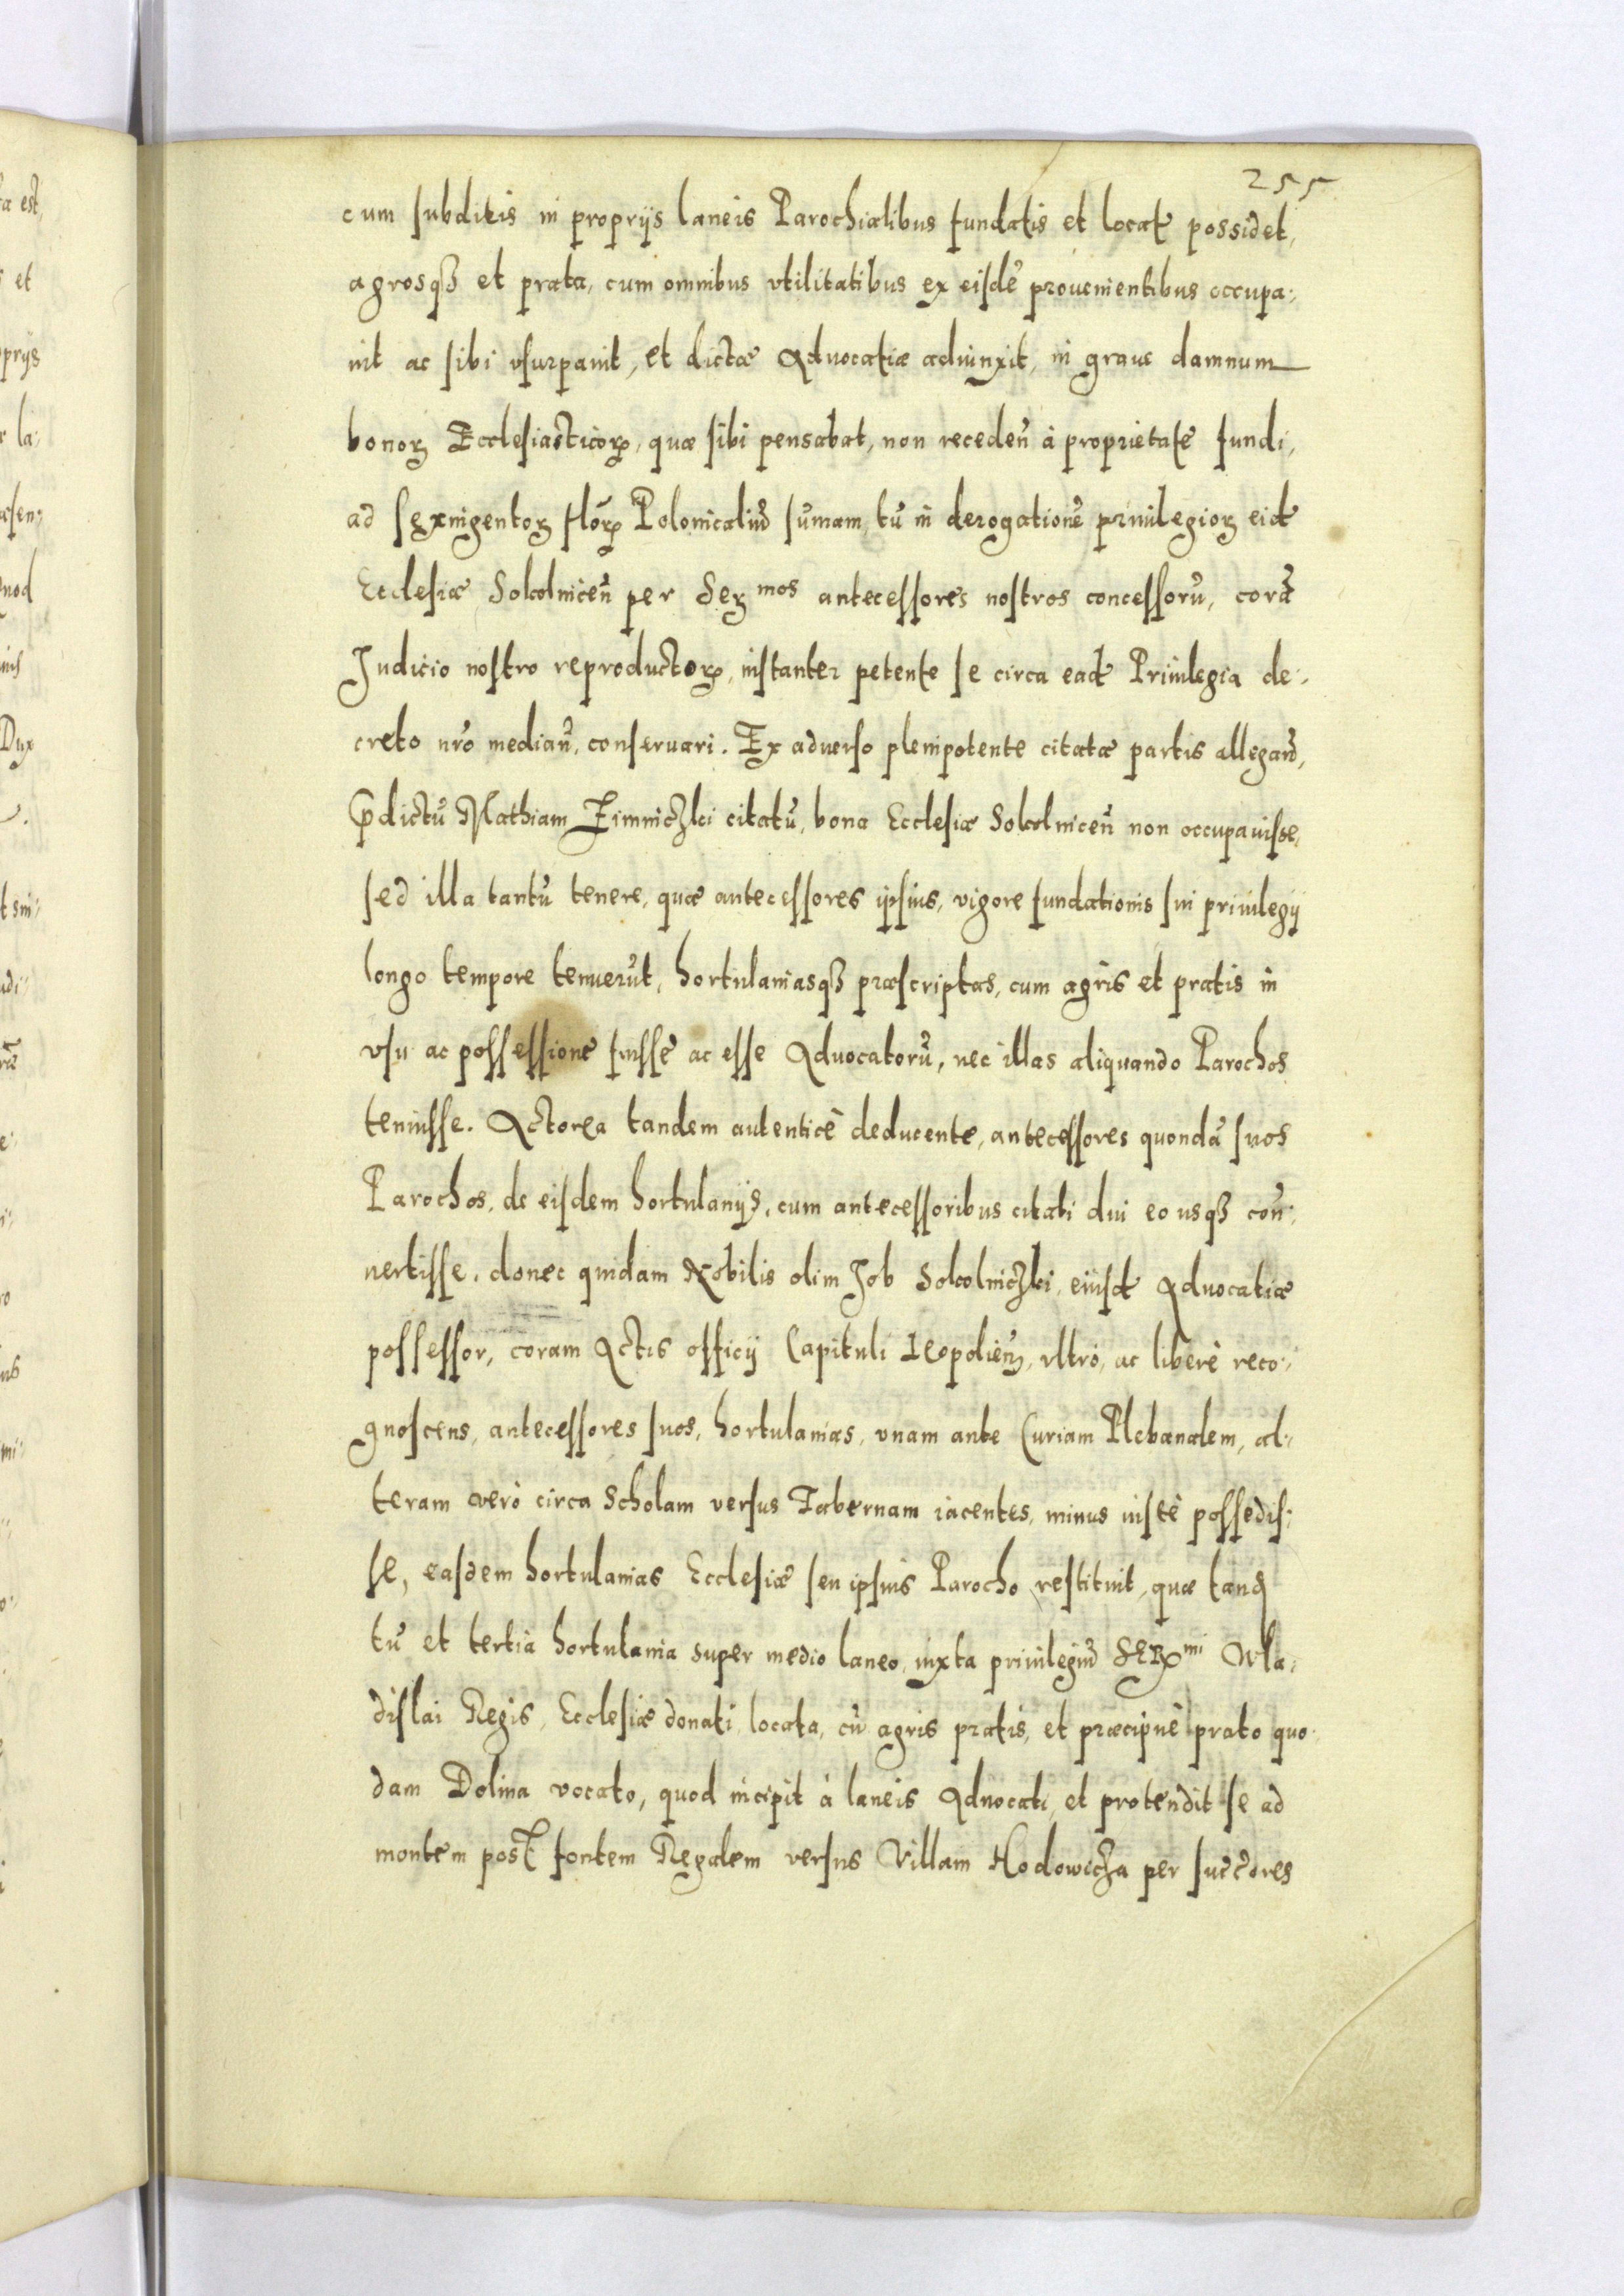 255
cum subditis in proprijs laneis Parochialibus fundatis et locat possidet,
agrosqȝ et prata, cum omnibus vtilitatibus ex eisdē prouenientibus occupa:
uit ac sibi vsurpauit, et dictæ Aduocatiæ adiunxit, in graue damnum
bonoꝝ Ecclesiasticoꝝ, quæ sibi pensabat, non recedeñ à proprietate fundi,
ad sexingentoꝝ flōꝝ Polonicaliū sūmam, tū in derogationē priuilegioꝝ eid
Ecclesiæ Sokolniceñ per Seꝝmos antecessores nostros concessorū, corā
Judicio nostro reproductoꝝ, instanter petente se circa ead Priuilegia de:
creto nr̃o mediañ, conseruari. Ex aduerso plenipotente citatæ partis allegañ,
P̃dictū Mathiam Zimniczki citatū, bona Ecclesiæ Sokolniceñ non occupauisse,
sed illa tantū tenere, quæ antecessores ipsius, vigore fundationis sui priuilegij
longo tempore tenuerūt, hortulaniasqȝ præscriptas, cum agris et pratis in
vsu ac possessione fuisse ac esse Aduocatorū, nec illas aliquando Parochos
tenuisse. Actorea tandem autenticè deducente, antecessores quondā suos
Parochos, de eisdem hortulanijs, cum antecessoribus citati diu eo usqȝ coñ:
uertisse, donec quidam Nobilis olim Job Sokolniczki, eiusd Aduocatiæ
possessor, coram Actis officij Capituli Leopolieñ, vltrò, ac liberè reco:
gnoscens, antecessores suos, hortulanias, vnam ante Curiam Plebanalem, al:
teram verò circa Scholam versus Tabernam iacentes, minus iustè possedis:
se, easdem hortulanias Ecclesiæ seu ipsius Parocho restituit, quæ tanq
tū et tertia hortulania super medio laneo, iuxta priuilegiū Seꝝmi Wla:
dislai Regis, Ecclesiæ donati, locata, cū agris pratis, et præcipuè prato quo
dam Dolina vocato, quod incipit à laneis Aduocati, et protendit se ad
montem post fontem Regalem versus Villam Hodowicza per succ̃ores